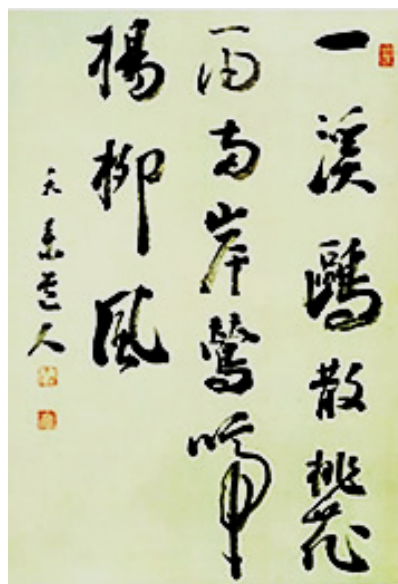 一溪鷗散桃花
雨南岸鶯啼
楊柳風
天素道人